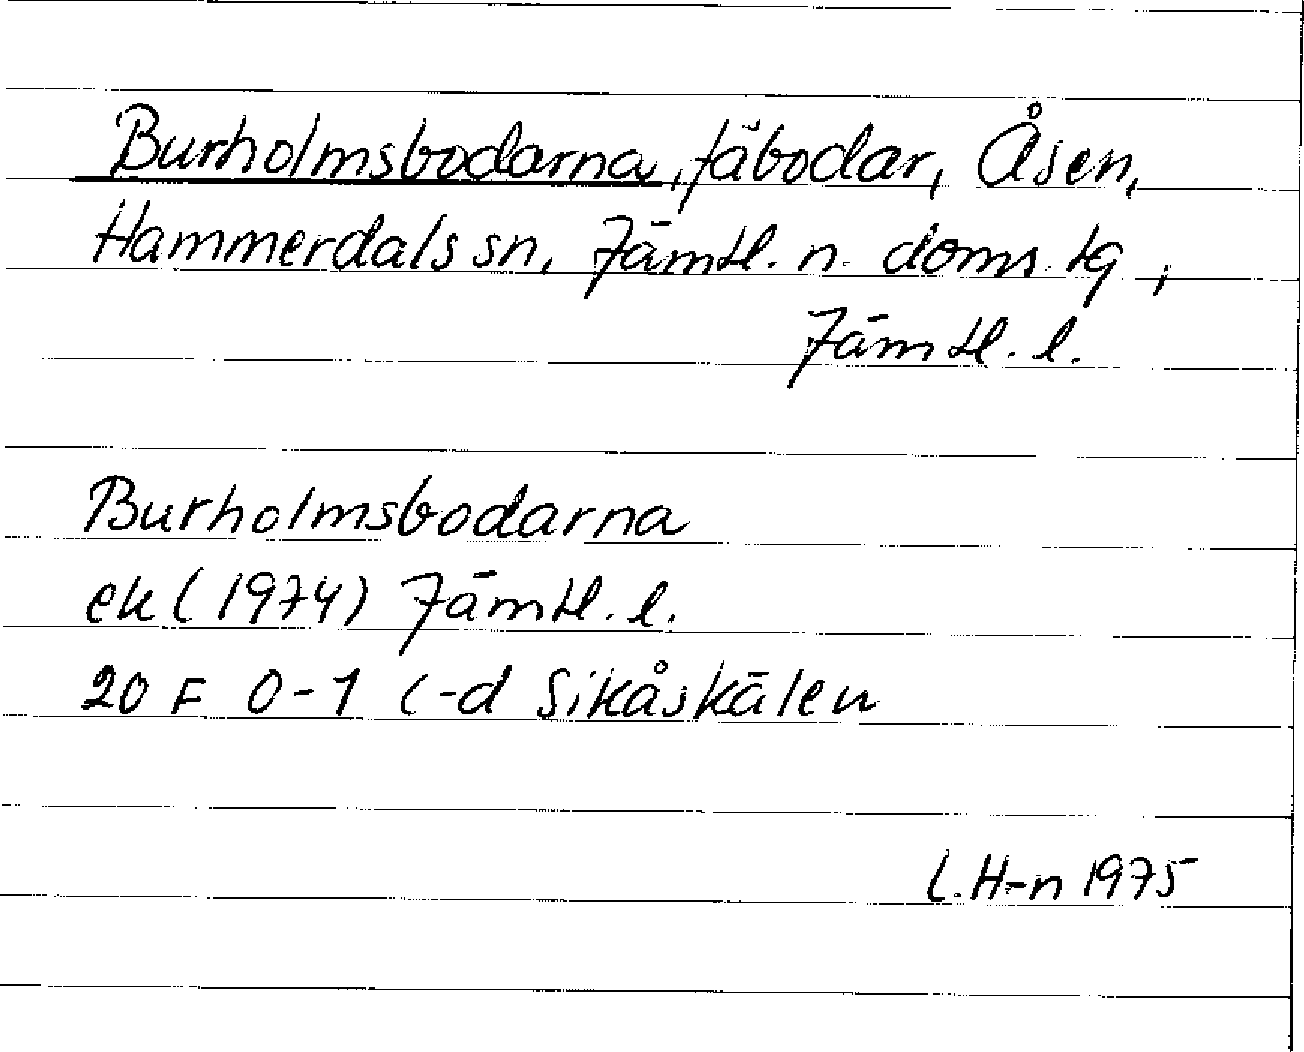 Burholmsbodarna, fäbodar, Åsen,
Hammerdals sn, Jämtl. n. doms. tg,
Jämtl. l.
Burholmsbodarna
ek (1974) Jämtl. l.
20 F 0-1 c-d Sikåskälen
L. H-n 1975